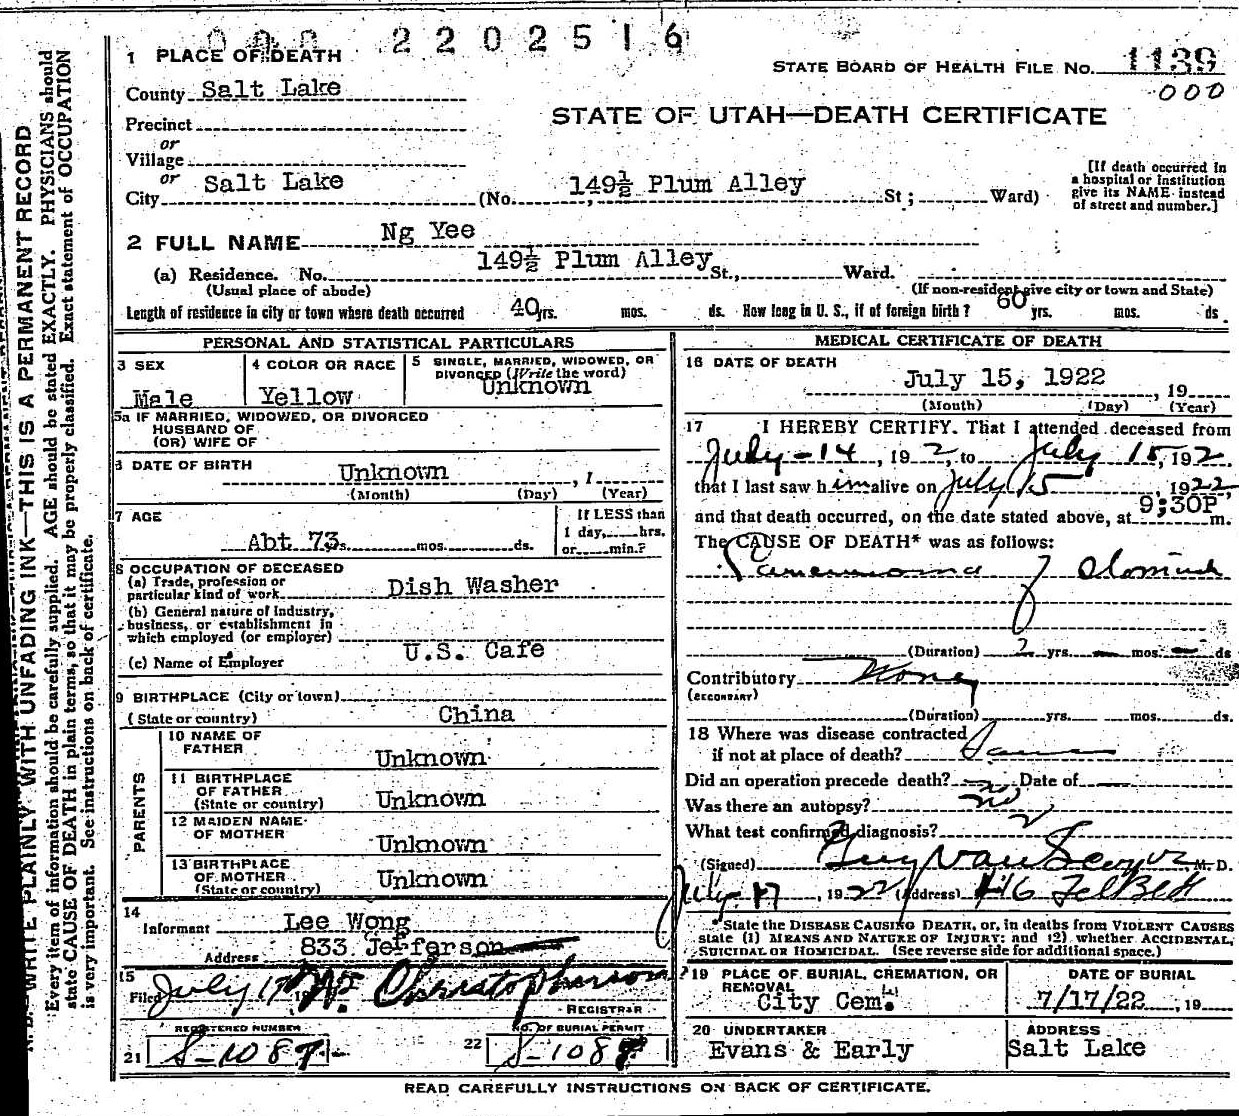 2202516
1 PLACE OF DEATH
STATE BOARD OF HEALTH FILE No. 1139
000
County Salt Lake
STATE OF UTAH—DEATH CERTIFICATE
Precinct
or
Village
or
City Salt Lake (No. 149½ Plum Alley St; Ward)
[If death occurred in a hospital or institution give its NAME instead of street and number.]
2 FULL NAME Ng Yee
(a) Residence. No. 149½ Plum Alley St., Ward.
(Usual place of abode) (If non-resident give city or town and State)
Length of residence in city or town where death occurred 40 yrs. mos. ds. How long in U. S., if of foreign birth? 60 yrs. mos. ds.
PERSONAL AND STATISTICAL PARTICULARS
3 SEX Male
4 COLOR OR RACE Yellow
5 SINGLE, MARRIED, WIDOWED, OR DIVORCED (Write the word) Unknown
5a IF MARRIED, WIDOWED, OR DIVORCED
HUSBAND OF
(OR) WIFE OF
6 DATE OF BIRTH Unknown , 1
(Month) (Day) (Year)
7 AGE Abt 73 s. mos. ds.
If LESS than
1 day, hrs.
or min.?
8 OCCUPATION OF DECEASED
(a) Trade, profession or
particular kind of work Dish Washer
(b) General nature of industry,
business, or establishment in
which employed (or employer)
(c) Name of Employer U.S. Cafe
9 BIRTHPLACE (City or town)
(State or country) China
PARENTS
10 NAME OF
FATHER Unknown
11 BIRTHPLACE
OF FATHER
(State or country) Unknown
12 MAIDEN NAME
OF MOTHER Unknown
13 BIRTHPLACE
OF MOTHER
(State or country) Unknown
14
Informant Lee Wong
Address 833 Jefferson
15
Filed July 17 19 Christopherson
REGISTRAR
REGISTERED NUMBER
21 S-1087
NO. OF BURIAL PERMIT
22 S-1087
MEDICAL CERTIFICATE OF DEATH
16 DATE OF DEATH
July 15, 1922 , 19
(Month) (Day) (Year)
17 I HEREBY CERTIFY. That I attended deceased from
July - 14 , 19 2, to July 15, 192
that I last saw him alive on July 15 , 1922
and that death occurred, on the date stated above, at 9;30P m.
The CAUSE OF DEATH* was as follows:
(Duration) 2 yrs. — mos. — ds
Contributory None
(SECONDARY)
(Duration) yrs. mos. ds.
18 Where was disease contracted
if not at place of death?
Did an operation precede death? no Date of —
Was there an autopsy? no
What test confirmed diagnosis?
(Signed) M. D.
July 17 , 1922 (Address)
*State the DISEASE CAUSING DEATH, or, in deaths from VIOLENT CAUSES
state (1) MEANS AND NATURE OF INJURY; and (2) whether ACCIDENTAL,
SUICIDAL OR HOMICIDAL. (See reverse side for additional space.)
19 PLACE OF BURIAL, CREMATION, OR
REMOVAL
City Cem.
DATE OF BURIAL
7/17/22 , 19
20 UNDERTAKER
Evans & Early
ADDRESS
Salt Lake
READ CAREFULLY INSTRUCTIONS ON BACK OF CERTIFICATE.
N. B.—WRITE PLAINLY WITH UNFADING INK—THIS IS A PERMANENT RECORD
Every item of information should be carefully supplied. AGE should be stated EXACTLY. PHYSICIANS should
state CAUSE OF DEATH in plain terms, so that it may be properly classified. Exact statement of OCCUPATION
is very important. See instructions on back of certificate.